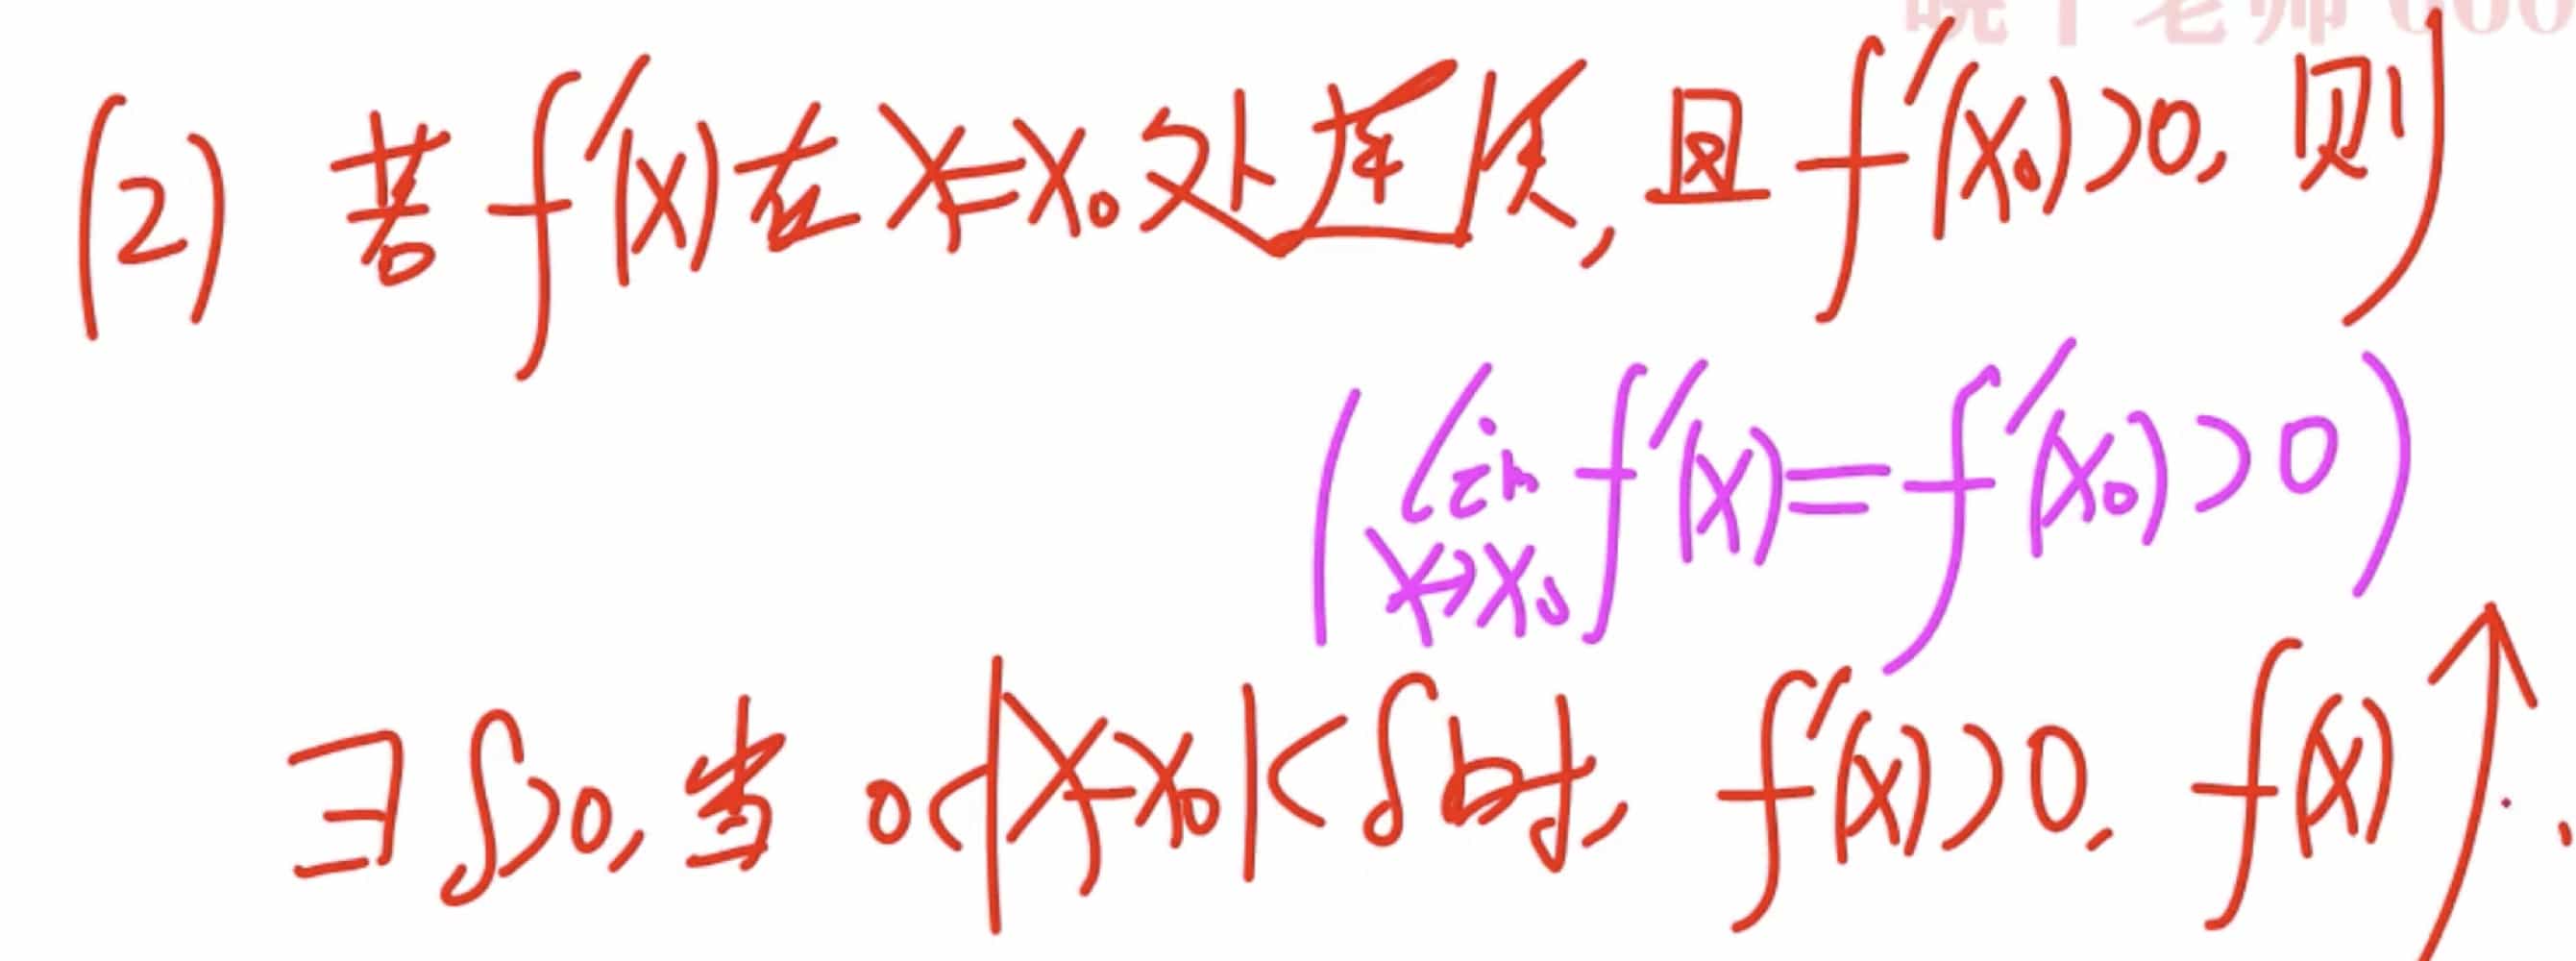 晓千老师
(2) 若 f'(x) 在 x=x₀ 处连续, 且 f'(x₀)>0, 则
(lim x→x₀ f'(x)=f'(x₀)>0)
∃ δ>0, 当 0<|x-x₀|<δ时, f'(x)>0, f(x)↑.